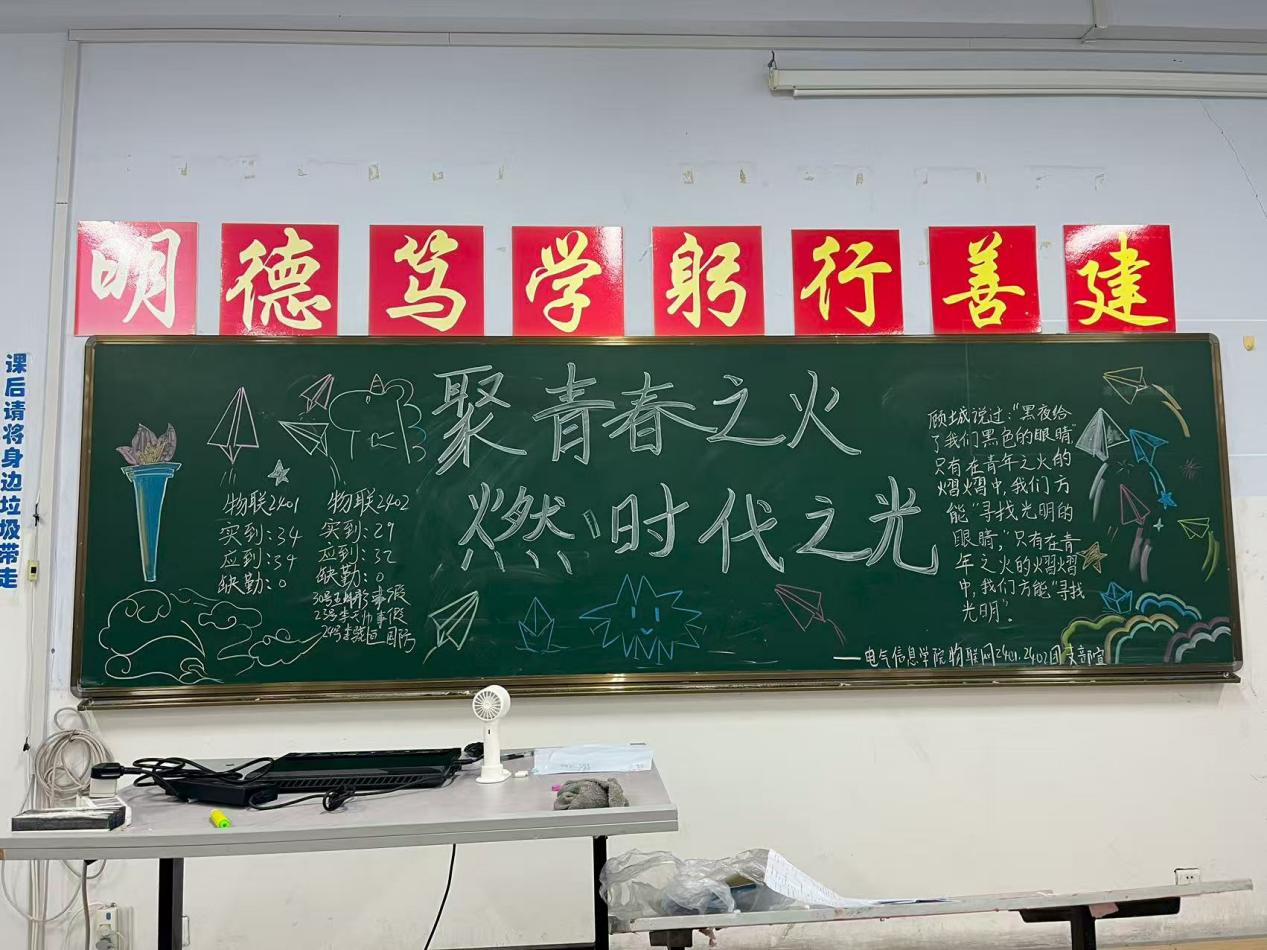 明德笃学躬行善建
课后请将身边垃圾带走
聚青春之火
燃时代之光
物联2401
实到:34
应到:34
缺勤:0
物联2402
实到:29
应到:32
缺勤:0
事假
事假
顾城说过:“黑夜给
了我们黑色的眼睛”
只有在青年之火的
熠熠中,我们方
能“寻找光明的
眼睛,”只有在青
年之火的熠熠
中,我们方能“寻找
光明”。
——电气信息学院物联网2401.2402团支部宣